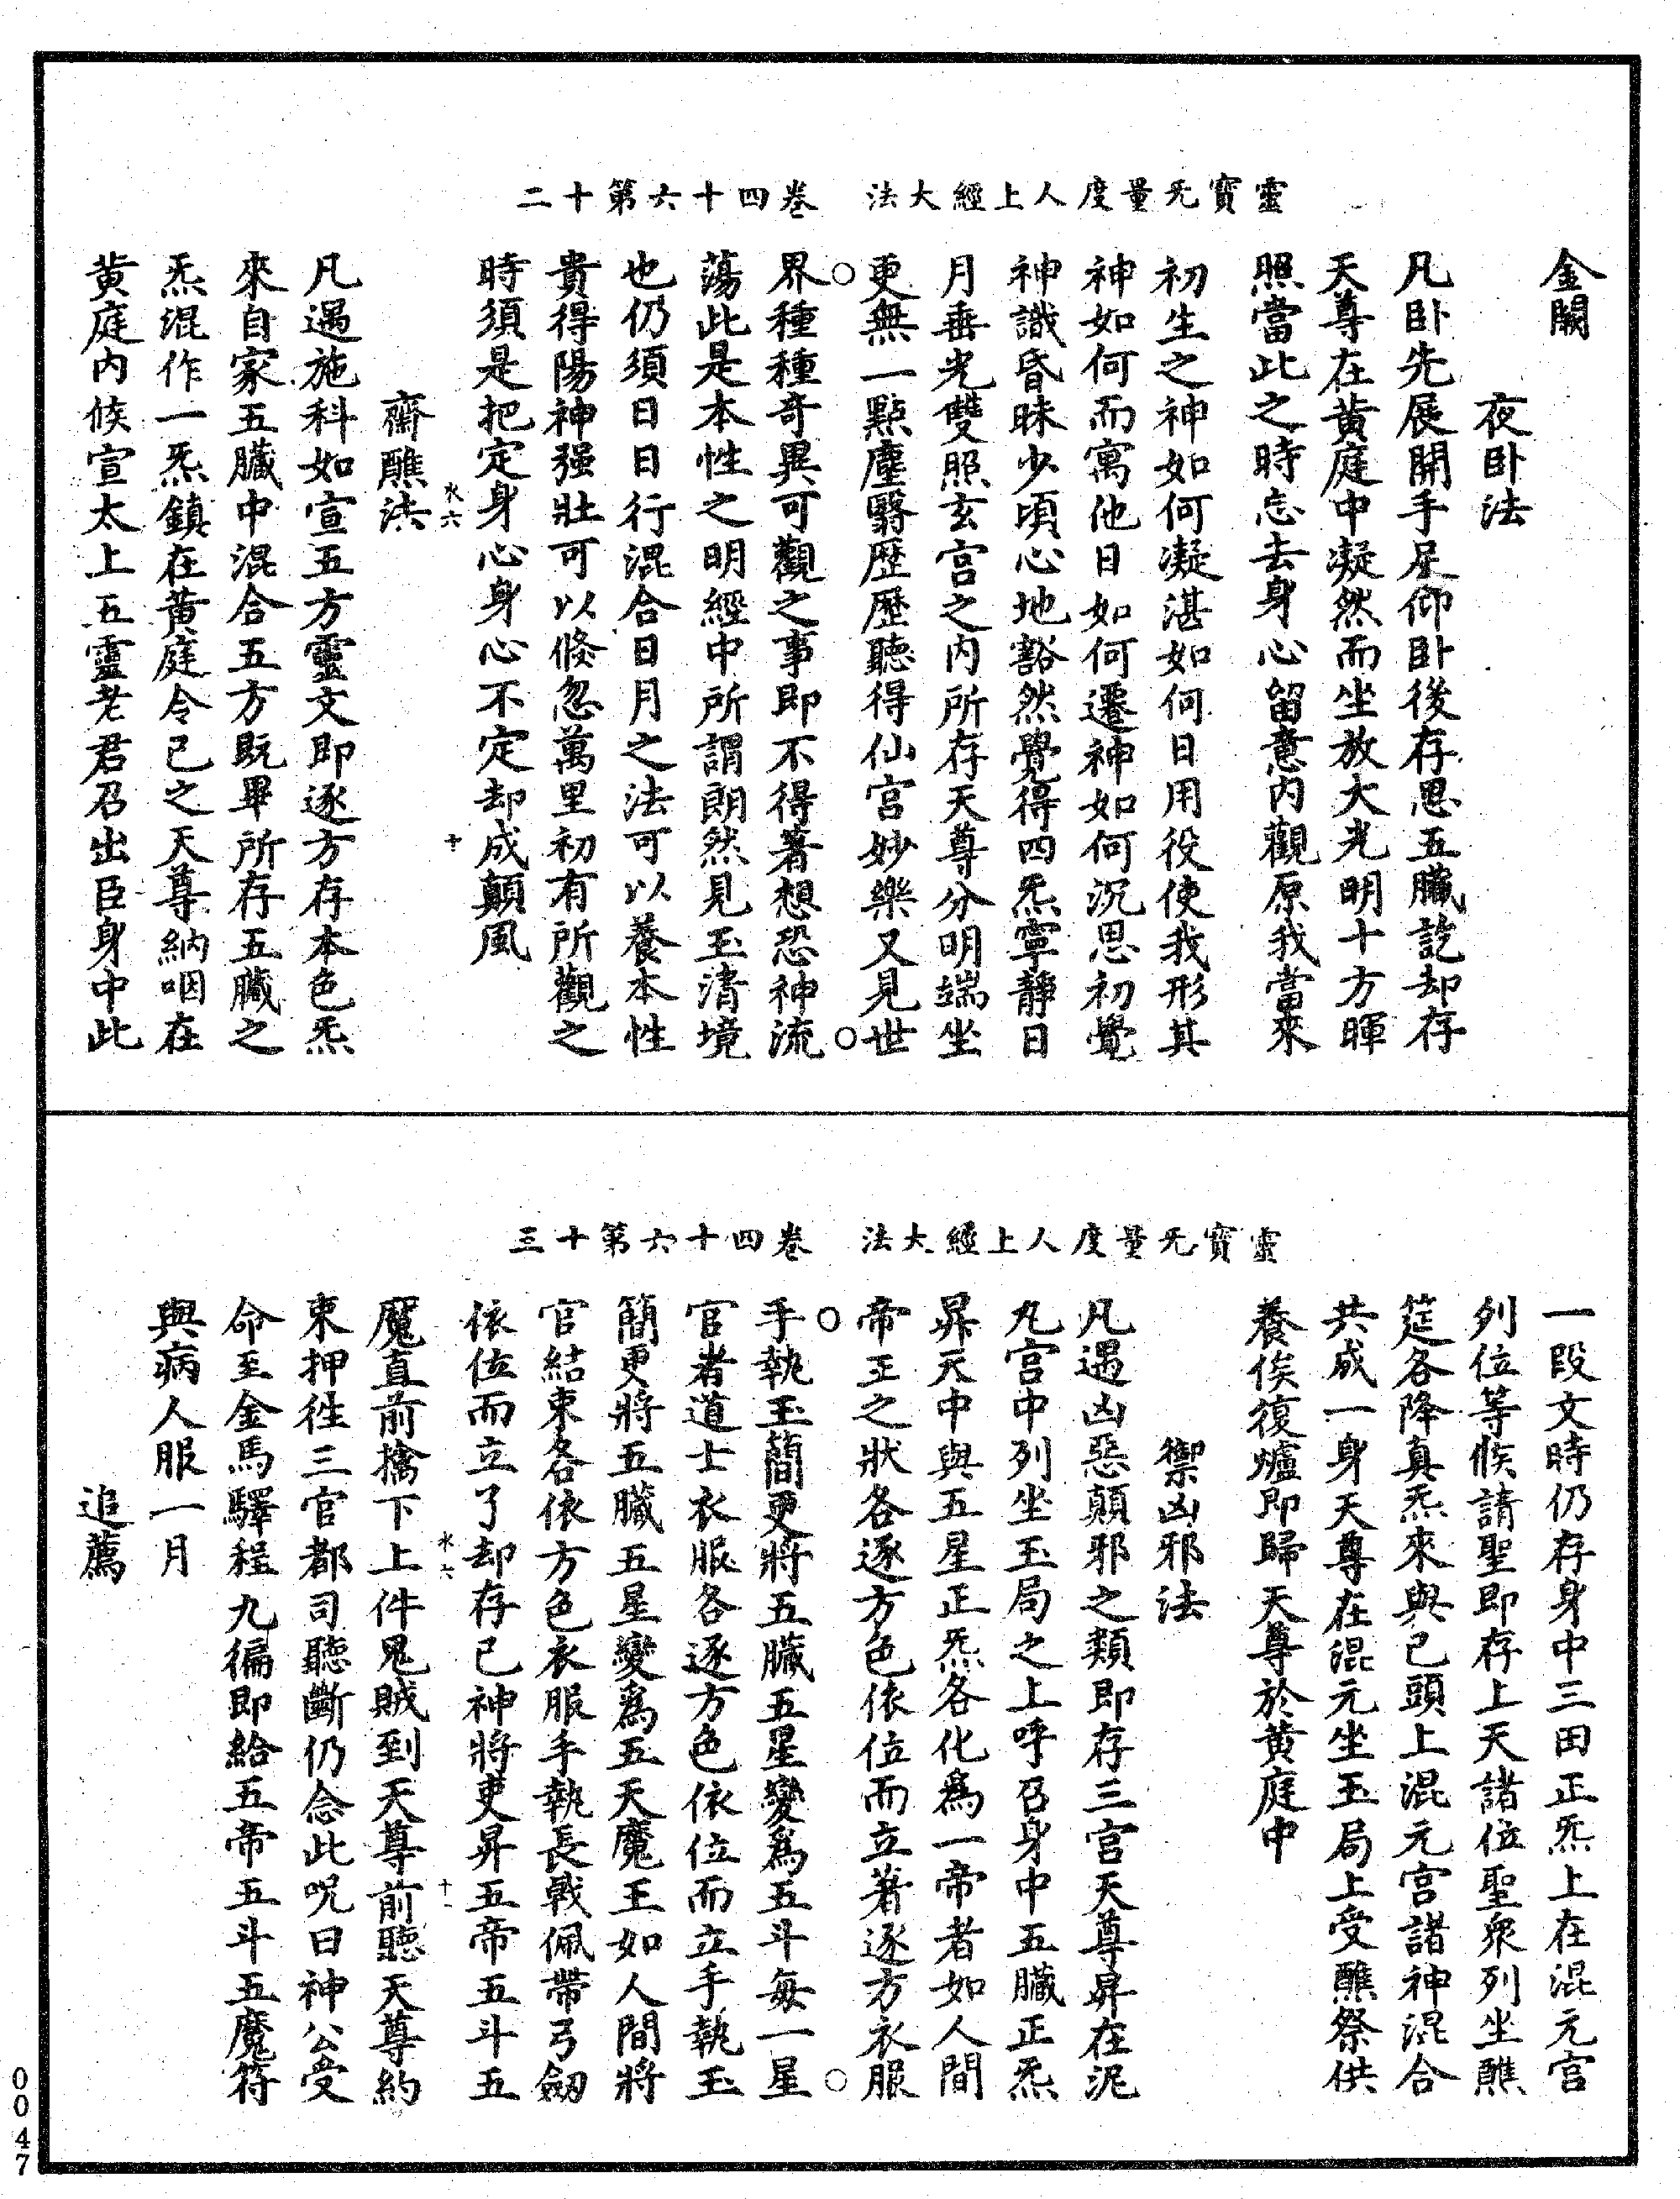 靈寶无量度人上經大法　卷四十六第十二
金闕
夜卧法
凡卧先展開手足仰卧後存思五臟訖却存
天尊在黄庭中凝然而坐放大光明十方暉
照當此之時忘去身心留意内觀原我當來
初生之神如何凝湛如何日用役使我形其
神如何而寓他日如何遷神如何沉思初覺
神識昏昧少頃心地豁然覺得四炁寧靜日
月垂光雙照玄宫之内所存天尊分明端坐
更無一點塵翳歷歷聽得仙宫妙樂又見世
界種種奇異可觀之事即不得著想恐神流
蕩此是本性之明經中所謂朗然見玉清境
也仍須日日行混合日月之法可以養本性
貴得陽神强壯可以倐忽萬里初有所觀之
時須是把定身心身心不定却成顛風
水六　十
齋醮法
凡遇施科如宣五方靈文即逐方存本色炁
來自家五臟中混合五方既畢所存五臟之
炁混作一炁鎮在黄庭令已之天尊納咽在
黄庭内候宣太上五靈老君召出臣身中此
靈寶无量度人上經大法　卷四十六第十三
一段文時仍存身中三田正炁上在混元宫
列位等候請聖即存上天諸位聖衆列坐醮
筵各降真炁來與已頭上混元宫諸神混合
共成一身天尊在混元坐玉局上受醮祭供
養俟復爐即歸天尊於黄庭中
禦凶邪法
凡遇凶惡顛邪之類即存三宫天尊昇在泥
丸宫中列坐玉局之上呼召身中五臟正炁
昇天中與五星正炁各化爲一帝者如人間
帝王之狀各逐方色依位而立著逐方衣服
手執玉簡更將五臟五星變爲五斗每一星
官者道士衣服各逐方色依位而立手執玉
簡更將五臟五星變爲五天魔王如人間將
官結束各依方色衣服手執長戟佩帶弓劒
依位而立了却存已神將吏昇五帝五斗五
水六　十一
魔直前擒下上件鬼賊到天尊前聽天尊約
束押往三官都司聽斷仍念此呪曰神公受
命至金馬驛程九徧即給五帝五斗五魔符
與病人服一月
追薦
0047